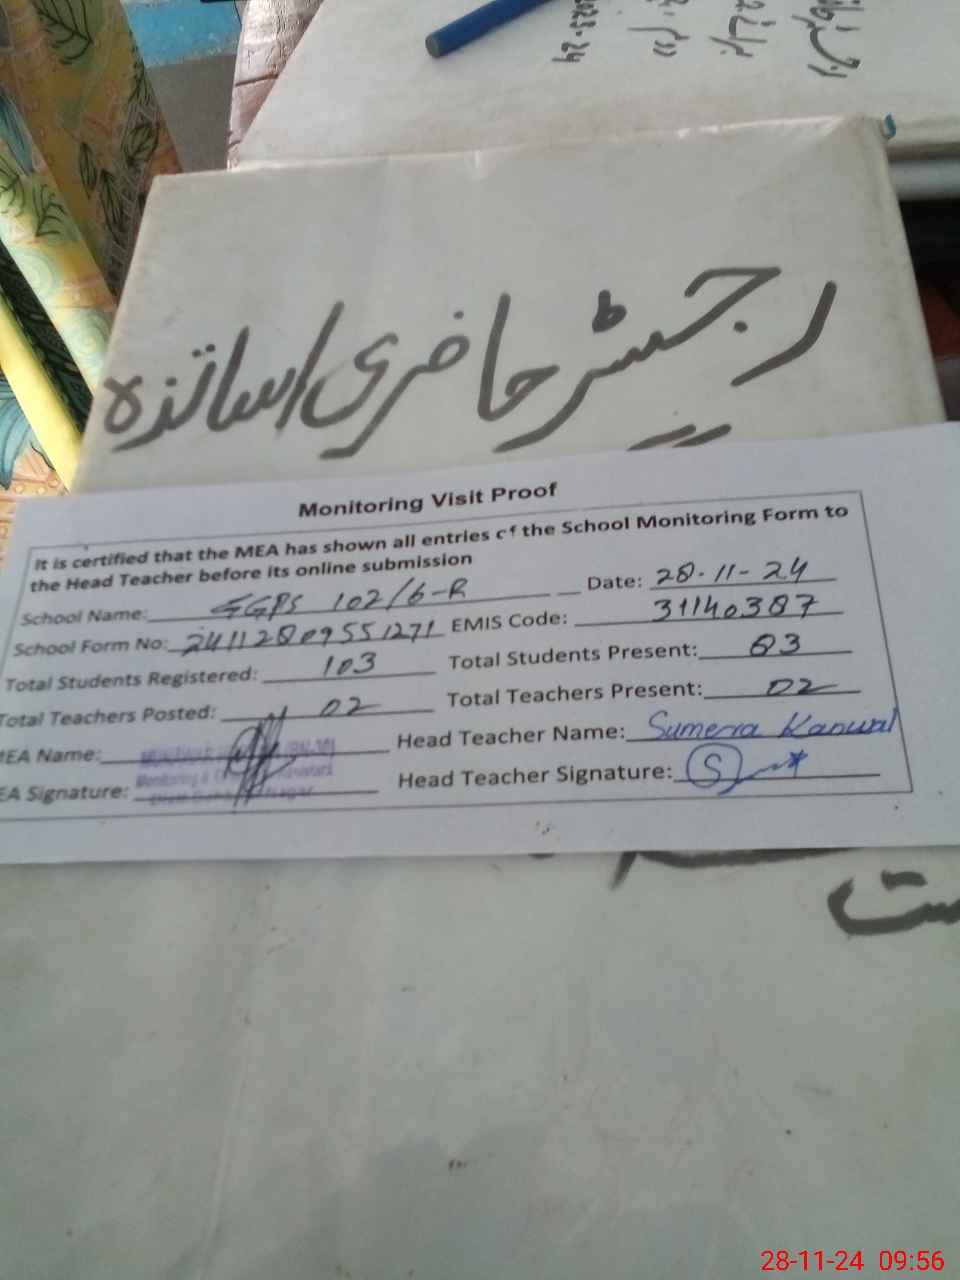 2023-24
رجسٹر حاضری اساتذہ
Monitoring Visit Proof
It is certified that the MEA has shown all entries of the School Monitoring Form to
the Head Teacher before its online submission
School Name: GGPS 102/6-R Date: 28-11-24
School Form No: 24112809551271 EMIS Code: 31140387
Total Students Registered: 103 Total Students Present: 83
Total Teachers Posted: 02 Total Teachers Present: 02
MEA Name: Head Teacher Name: Sumerra Kanwal
EA Signature: Head Teacher Signature: S
28-11-24 09:56